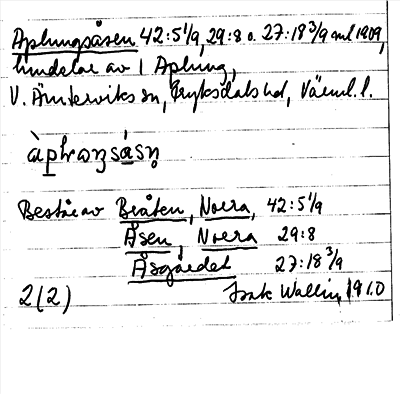 Aplungsåsen 42:5 1/9, 29:8 o. 27:18 3/9 enl 1909,
hindelar av 1 Aplung,
V. Ämterviks sn, Fryksdals hd, Värml. l.
Består av Bråten, Norra, 42:5 1/9
Åsen, Norra 29:8
Åsgärdet 27:18 3/9
2(2) Isak Wallin, 1910